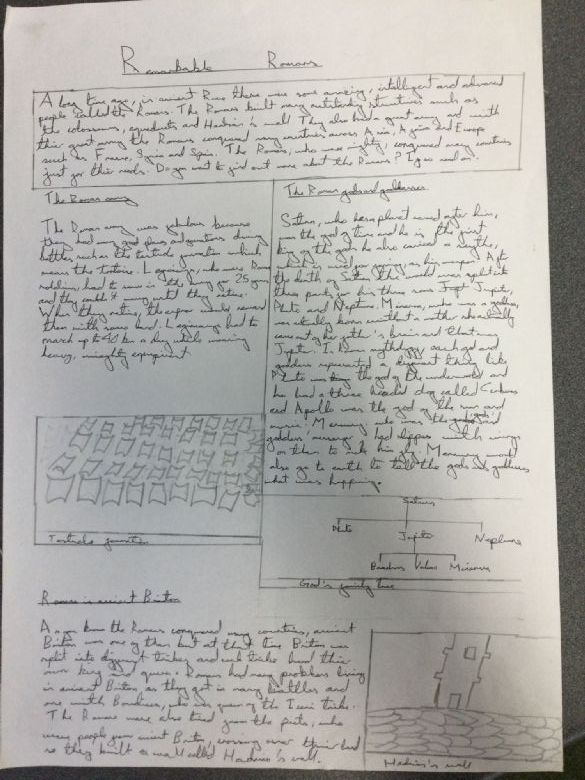 Remarkable Romans
A long time ago, in ancient Rome there were some amazing, intelligent and advanced
people called the Romans. The Romans built many outstanding structures such as
the colosseum, aqueducts and Hadrian's wall. They also had a great army and with
their great army the Romans conquered many countries across Asia, Africa and Europe
such as France, Syria and Spain. The Romans, who were mighty, conquered many countries
just for their needs. Do you want to find out more about the Romans? If so read on.
The Roman army
The Roman army was fabulous because
they had very good plans and formations during
battles such as the formation which
means the tortoise. Legionarys, who were Roman
soldiers, had to serve in the army for 25 years
and they couldn't marry until they retire.
When they retire, the emperor would reward
them with some land. Legionarys had to
march up to 40 km a day while wearing
heavy, weighty equipment
The Roman gods and goddesses
Saturn, who has a planet named after him,
was the god of time and he is the first
king of the gods he also carried a scythe,
which is used for , as his weapon. After
the death of Saturn the world was split into
three parts for his three sons Jupiter,
Pluto and Neptune. Minerva, who was a goddess,
was born without a mother she
came out of her father's brain and that was
Jupiter. In Roman mythology each god and
goddess represented a different thing like
Pluto was the god of the underworld and
he had a three headed dog called Cerberus
and Apollo was the god of the sun and
music. Mercury who was the gods and
goddess' messenger had slippers with wings
on them to make him fly. Mercury would
also go to earth to tell the gods & goddesses
what was happening.
Saturn
Pluto Jupiter Neptune
Minerva
God's family tree
formation
Romans in ancient Britain
As you know the Romans conquered many countries, ancient
Britain was one of them but at that time Britain was
split into different tribes and each tribe had their
own king and queen. Romans had many problems living
in ancient Britain as they got in many battles and
one with Boudicca, who was queen of the Iceni tribe.
The Romans were also tired from the picts, who
were people from ancient Britain, crossing over their land
so they built a wall called Hadrian's wall.
Hadrian's wall